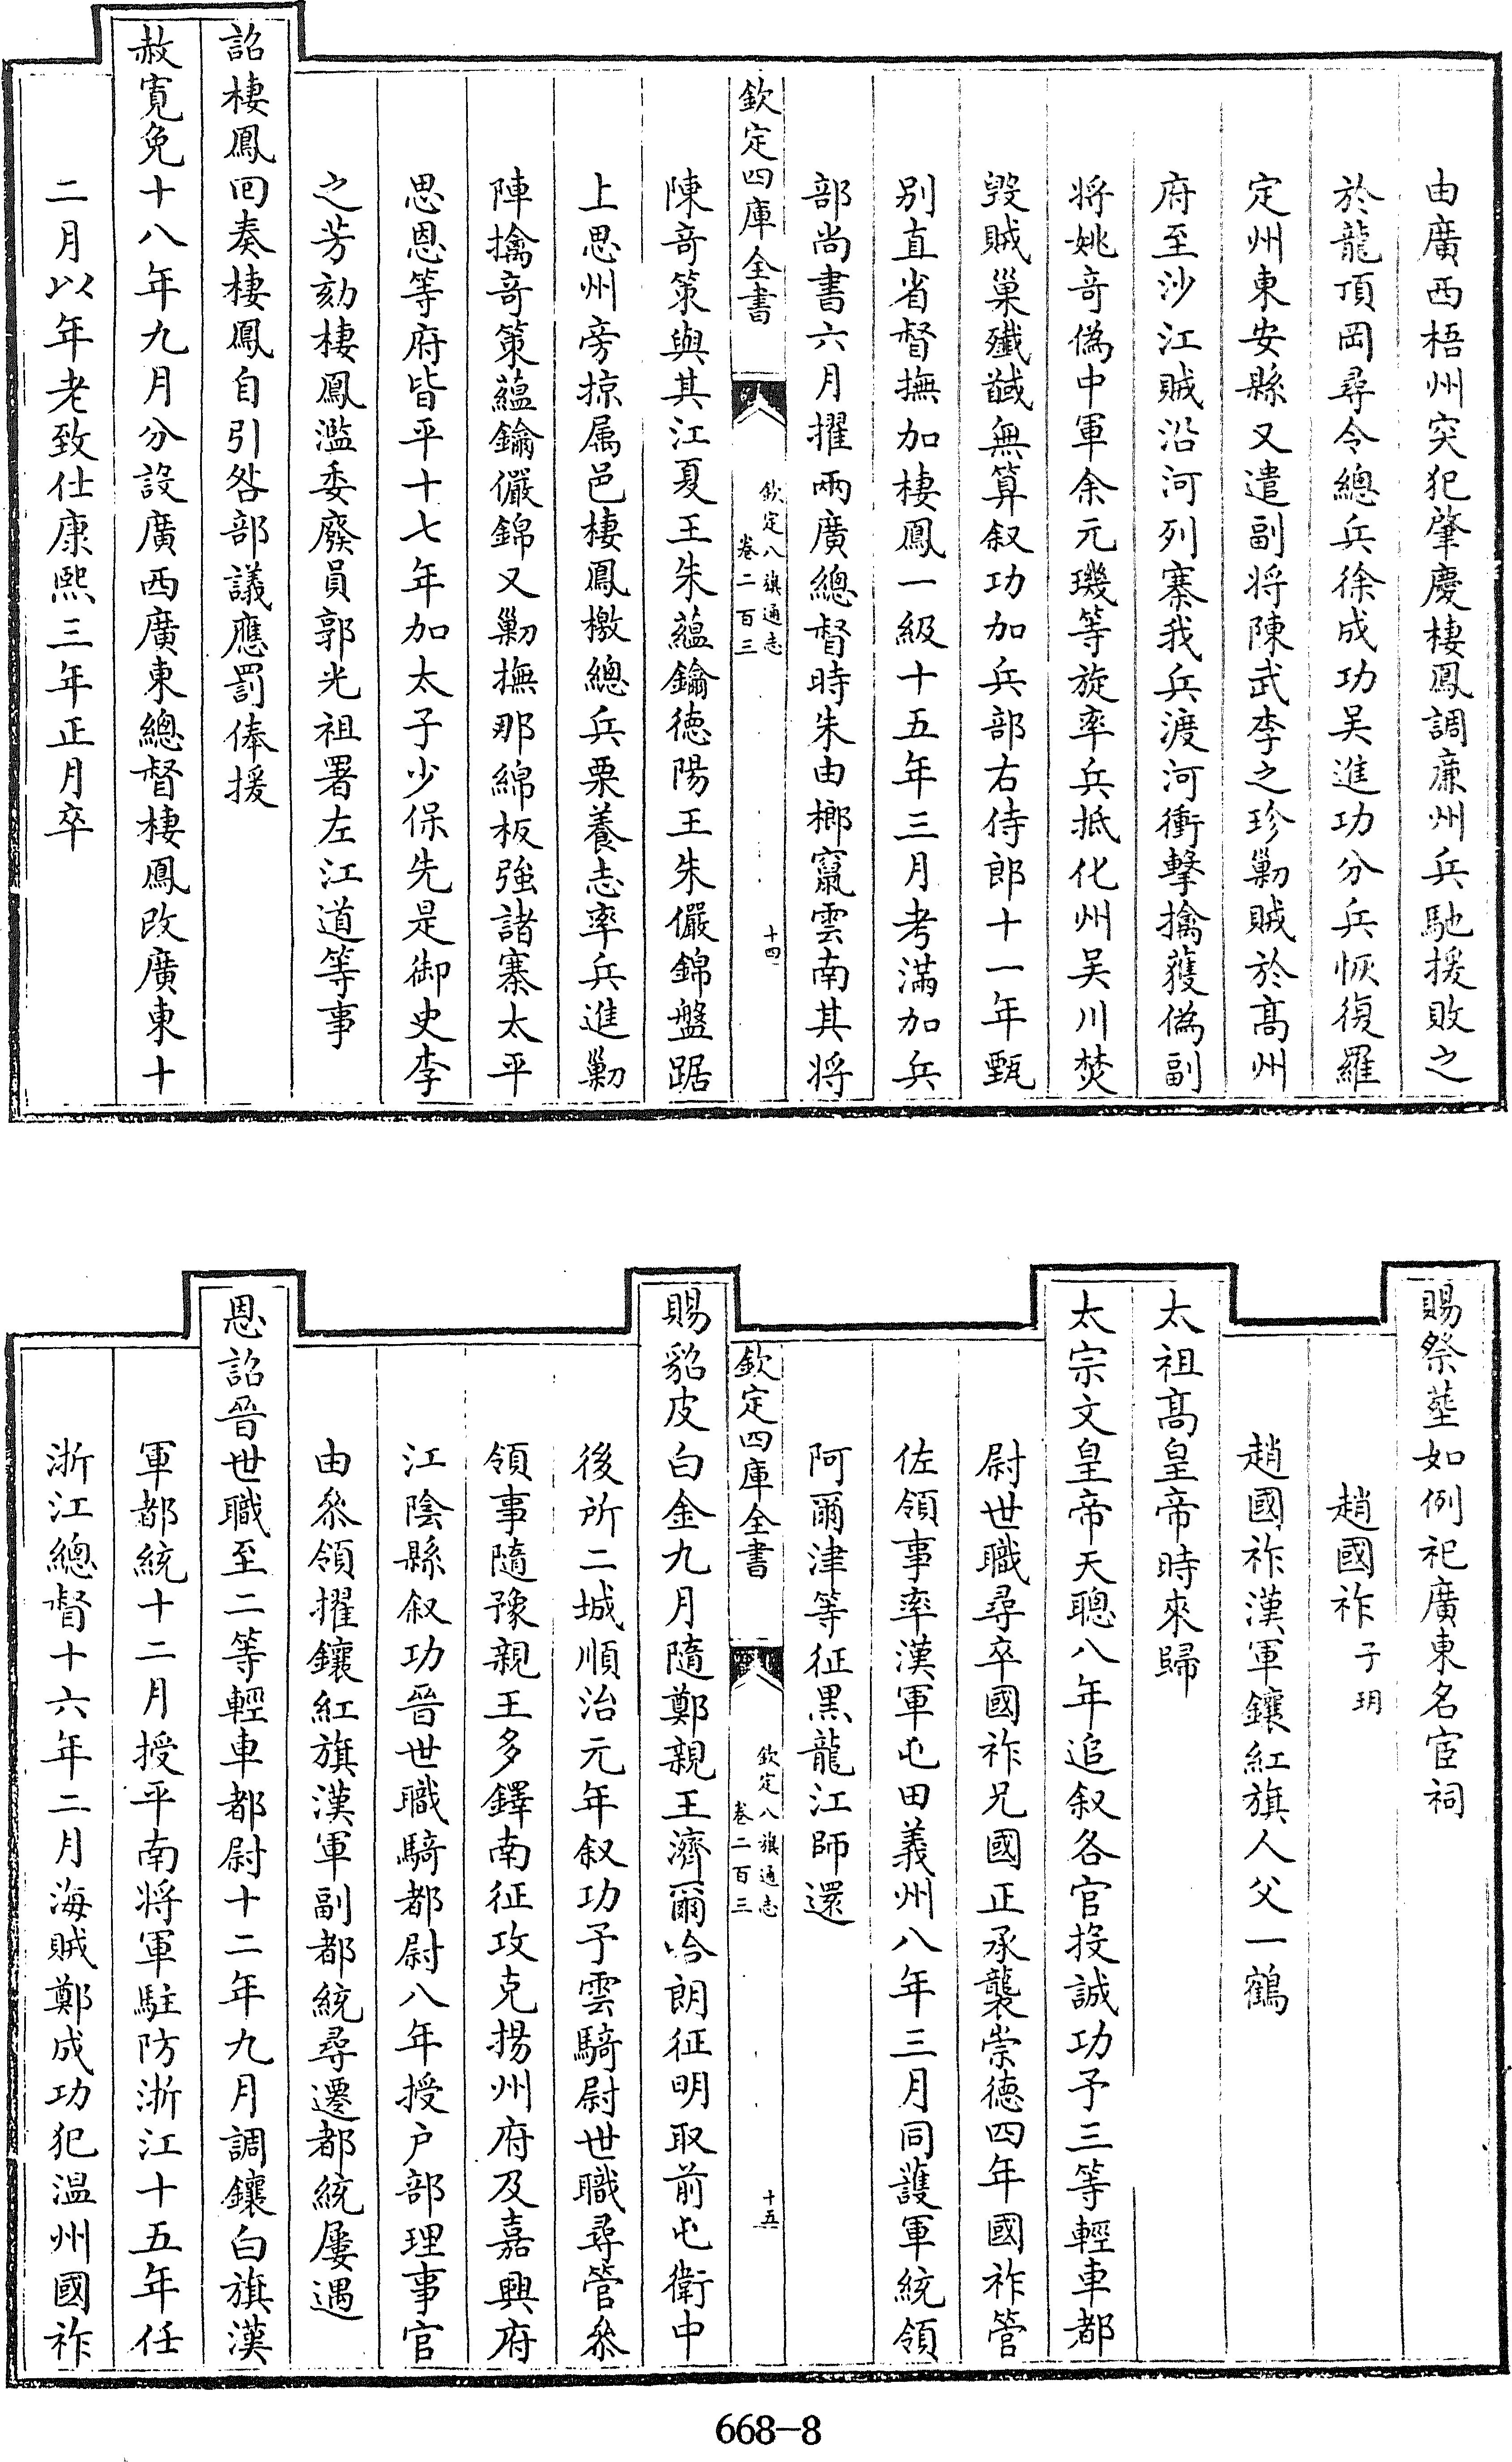 由廣西梧州突犯肇慶棲鳳調廉州兵馳援敗之
於龍頂岡尋令總兵徐成功吴進功分兵恢復羅
定州東安縣又遣副将陳武李之珍勦賊於髙州
府至沙江賊沿河列寨我兵渡河衝擊擒獲偽副
将姚竒偽中軍余元璣等旋率兵抵化州吴川焚
毀賊巢殲馘無算叙功加兵部右侍郎十一年甄
别直省督撫加棲鳳一級十五年三月考滿加兵
部尚書六月擢兩廣總督時朱由榔竄雲南其将
欽定四庫全書
欽定八旗通志
卷二百三
十四
陳竒策與其江夏王朱藴鑰徳陽王朱儼錦盤踞
上思州旁掠属邑棲鳳檄總兵栗養志率兵進勦
陣擒竒策藴鑰儼錦又勦撫那綿板強諸寨太平
思恩等府皆平十七年加太子少保先是御史李
之芳劾棲鳳濫委廢員郭光祖署左江道等事
詔棲鳳回奏棲鳳自引咎部議應罰俸援
赦寛免十八年九月分設廣西廣東總督棲鳳改廣東十
二月以年老致仕康熙三年正月卒
賜祭塟如例祀廣東名宦祠
趙國祚 子玥
趙國祚漢軍鑲紅旗人父一鶴
太祖髙皇帝時來歸
太宗文皇帝天聰八年追叙各官投誠功予三等輕車都
尉世職尋卒國祚兄國正承襲崇徳四年國祚管
佐領事率漢軍屯田義州八年三月同護軍統領
阿爾津等征黒龍江師還
欽定四庫全書
欽定八旗通志
卷二百三
十五
賜貂皮白金九月隨鄭親王濟爾哈朗征明取前屯衛中
後所二城順治元年叙功予雲騎尉世職尋管叅
領事隨豫親王多鐸南征攻克揚州府及嘉興府
江陰縣叙功晉世職騎都尉八年授户部理事官
由叅領擢鑲紅旗漢軍副都統尋遷都統屢遇
恩詔晉世職至二等輕車都尉十二年九月調鑲白旗漢
軍都統十二月授平南将軍駐防浙江十五年任
浙江總督十六年二月海賊鄭成功犯温州國祚
668-8